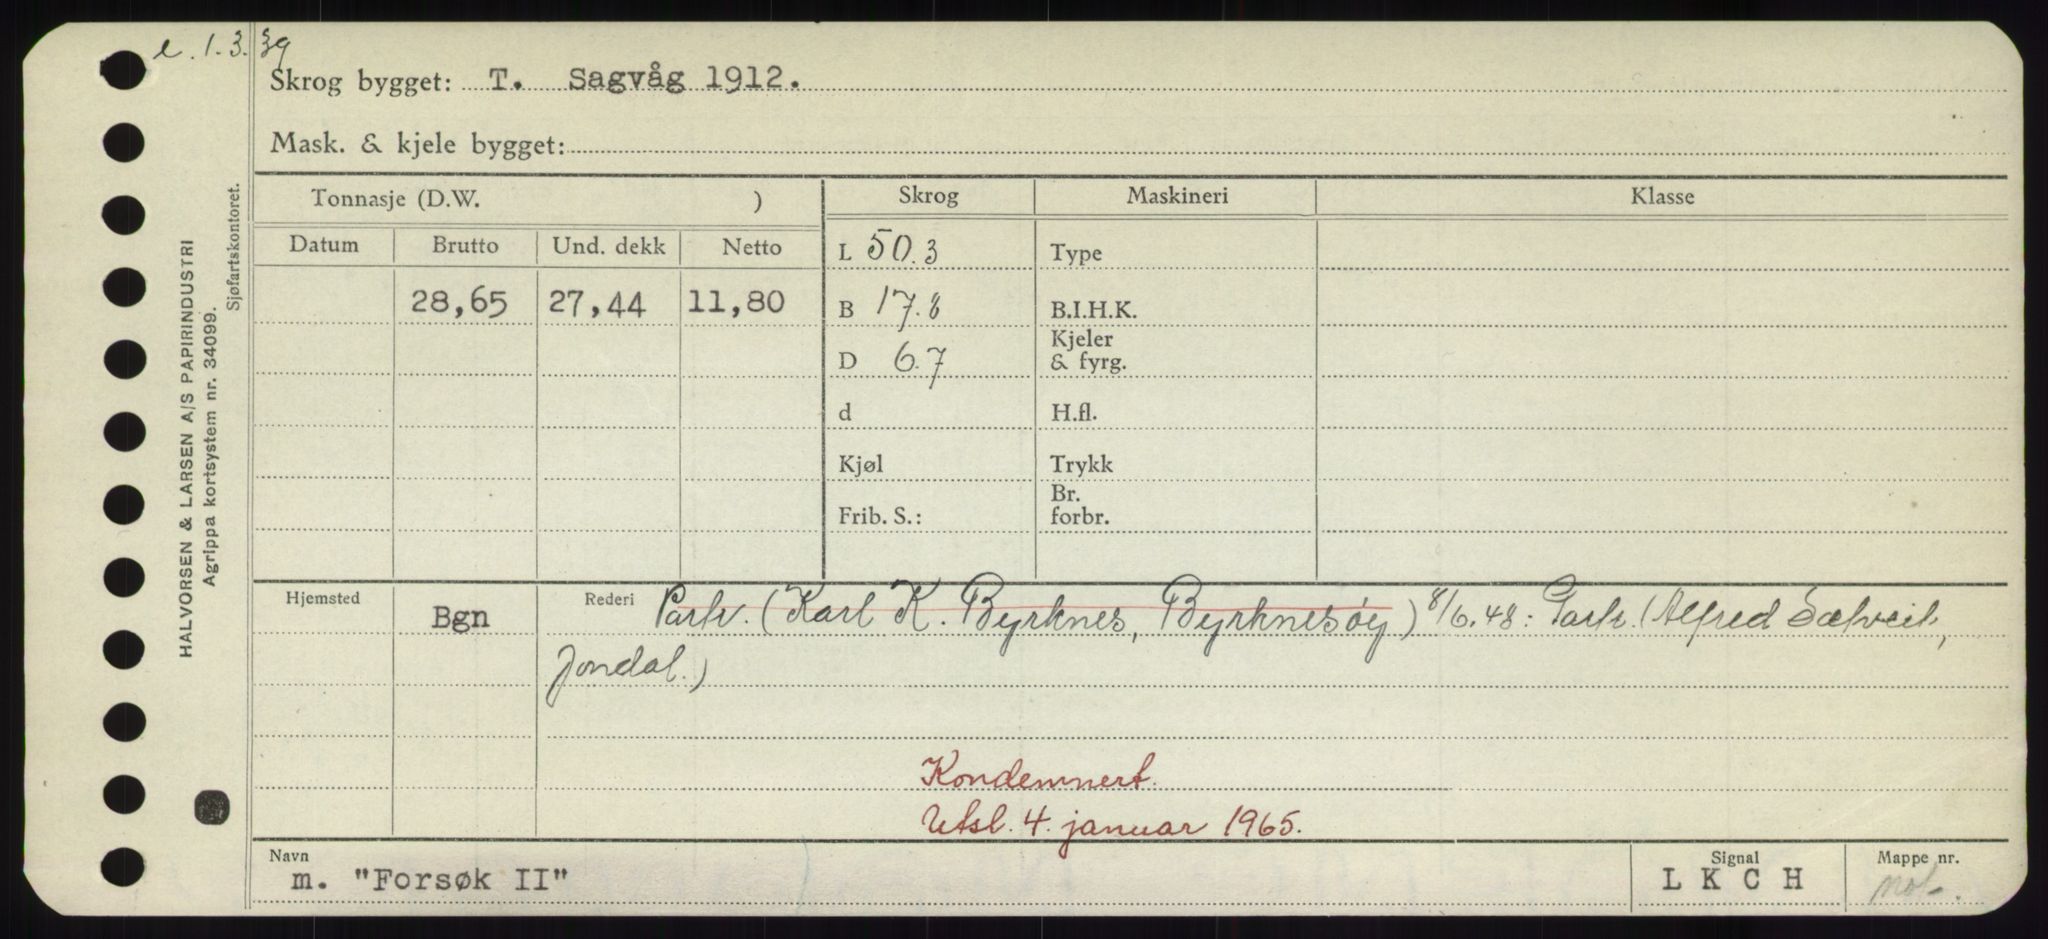 e. 1.3.39
Skrog bygget: T. Sagvåg 1912.
Mask. & kjele bygget:
HALVORSEN & LARSEN A/S PAPIRINDUSTRI
Agrippa kortsystem nr. 34099.
Sjøfartskontoret.
Tonnasje (D.W. ) Skrog Maskineri Klasse
Datum Brutto Und. dekk Netto L 50.3 Type
28,65 27,44 11,80 B 17.8 B.I.H.K.
D 6.7 Kjeler
& fyrg.
d H.fl.
Kjøl Trykk
Frib. S.: Br.
forbr.
Hjemsted Bgn Rederi Partr. (Karl K. Byrknes, Byrknesøy) 8/6.48: Partr. (Alfred Sætveit,
Jondal.)
Kondemnert.
Utsl. 4. januar 1965.
Navn Signal Mappe nr.
m. "Forsøk II" L K C H not.